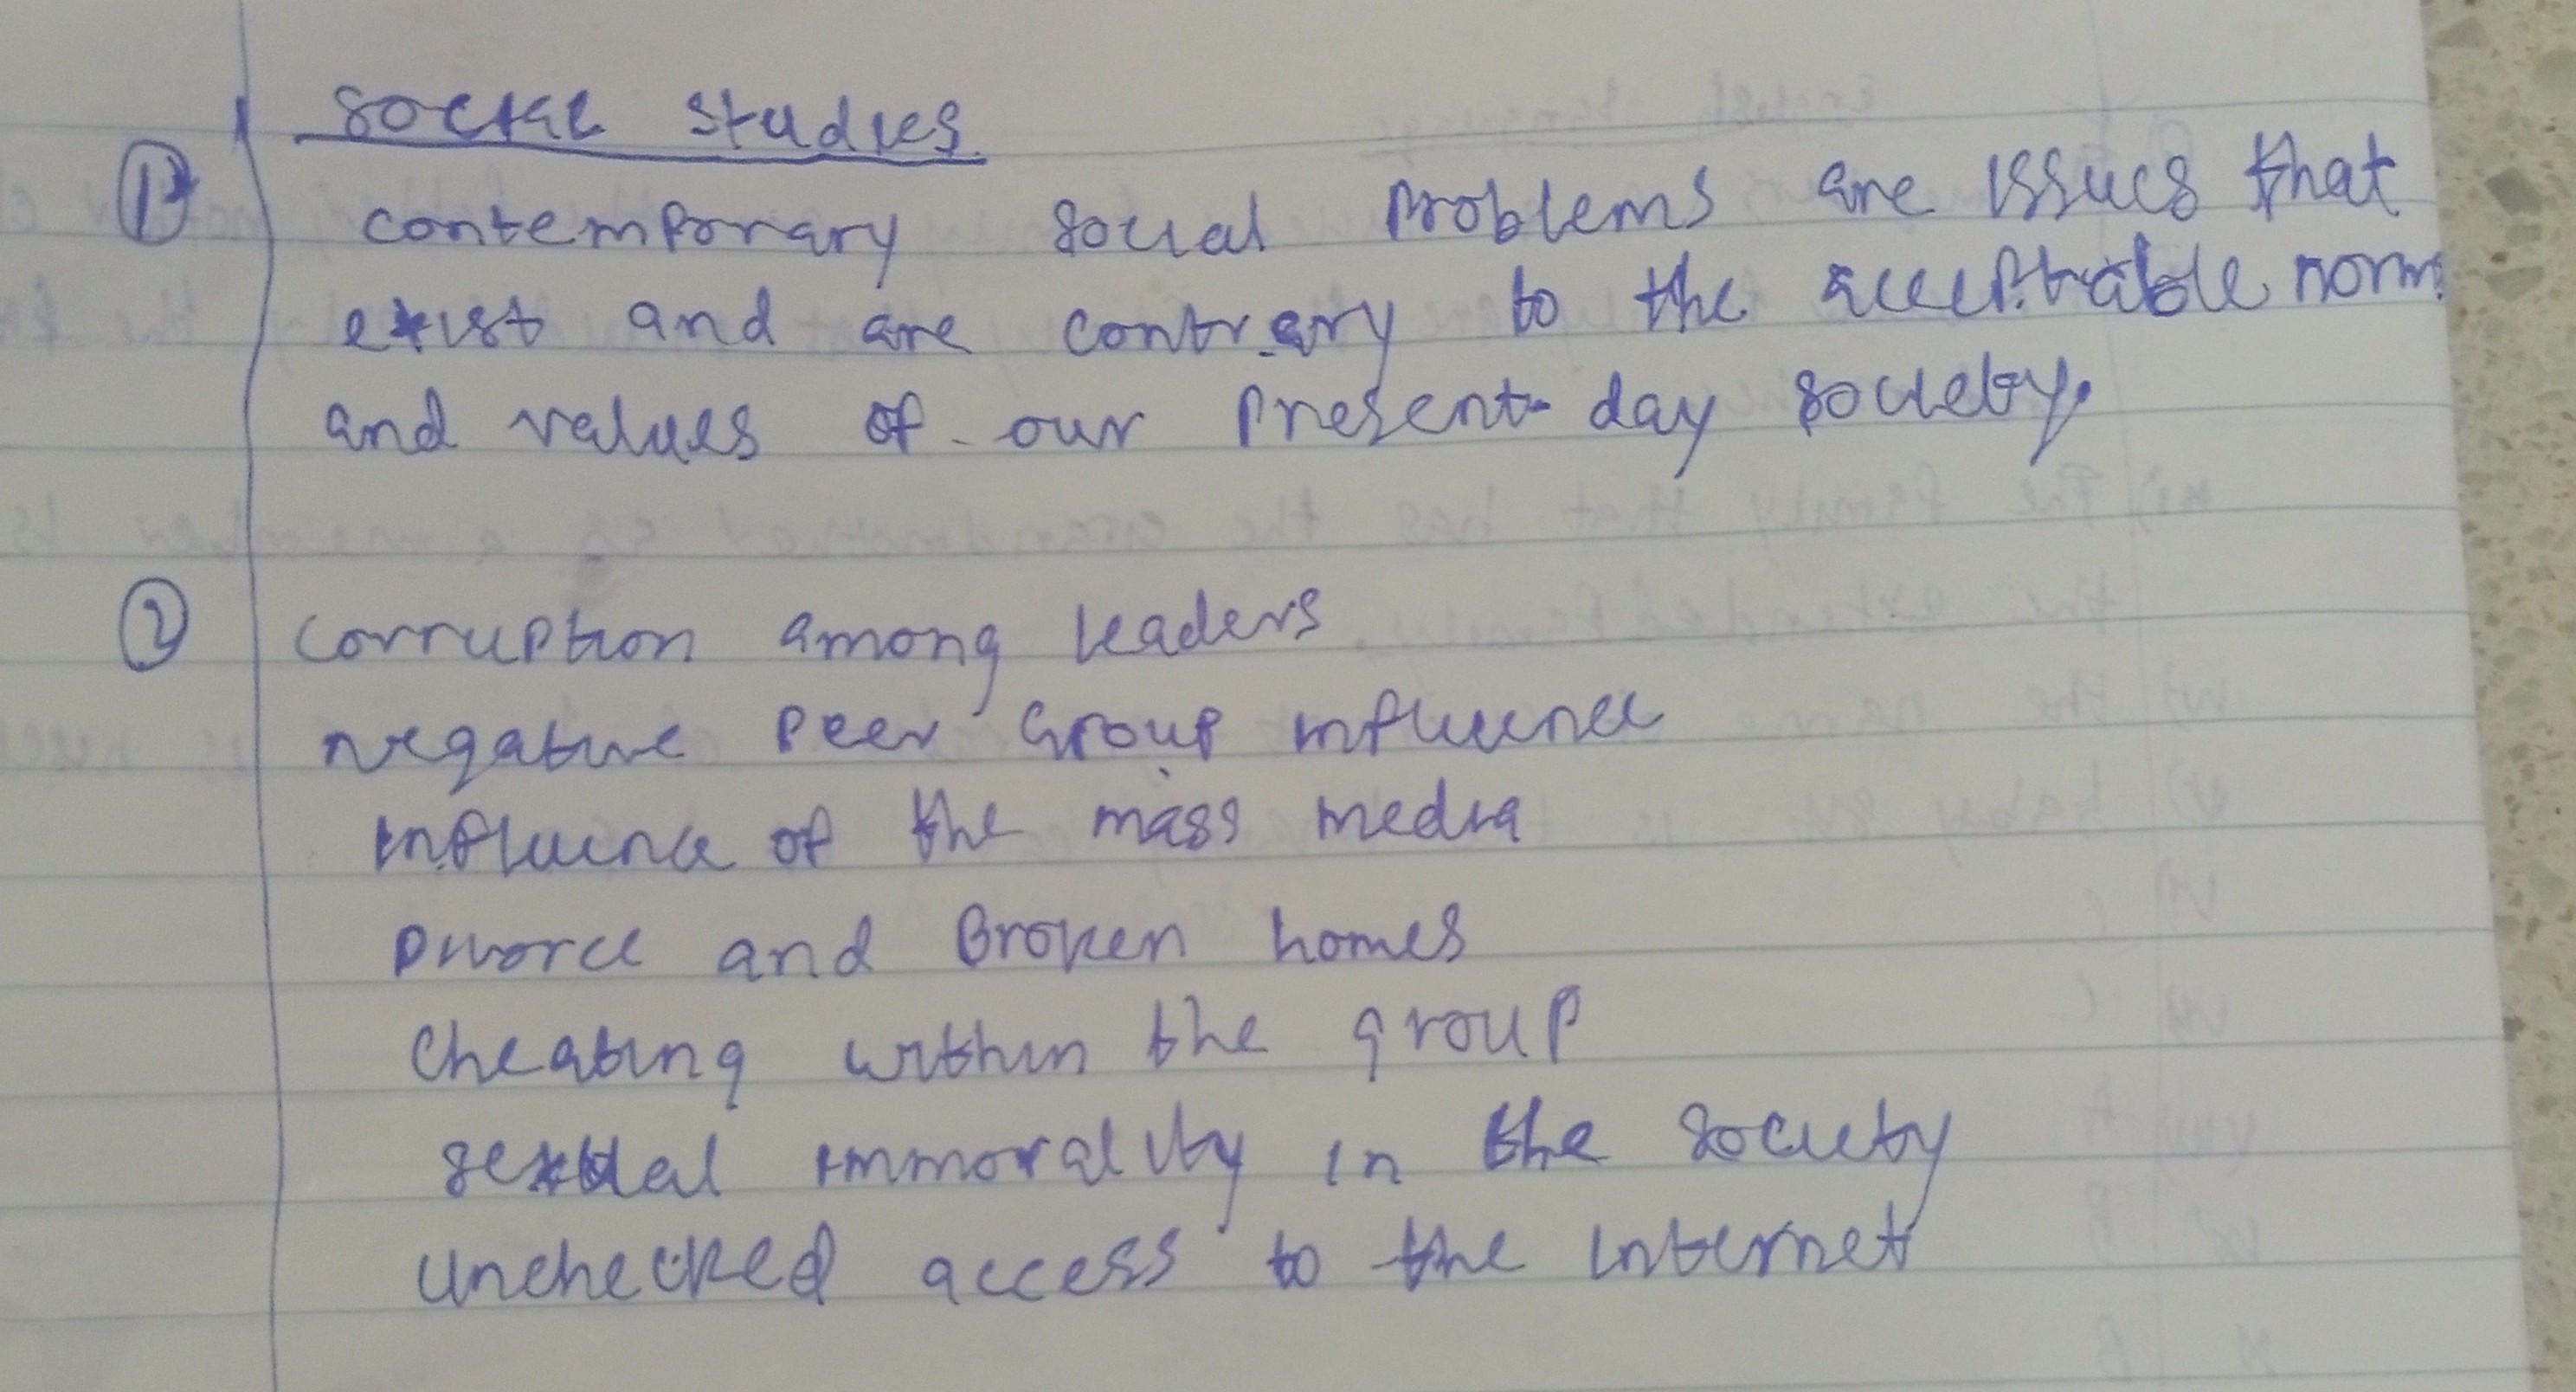 social studies
① contemporary social problems are issues that
exist and are contrary to the acceptable norms
and values of our present-day society.
② corruption among leaders
negative peer Group influence
influence of the mass media
Divorce and Broken homes
cheating within the group
sexual immorality in the society
unchecked access to the internet